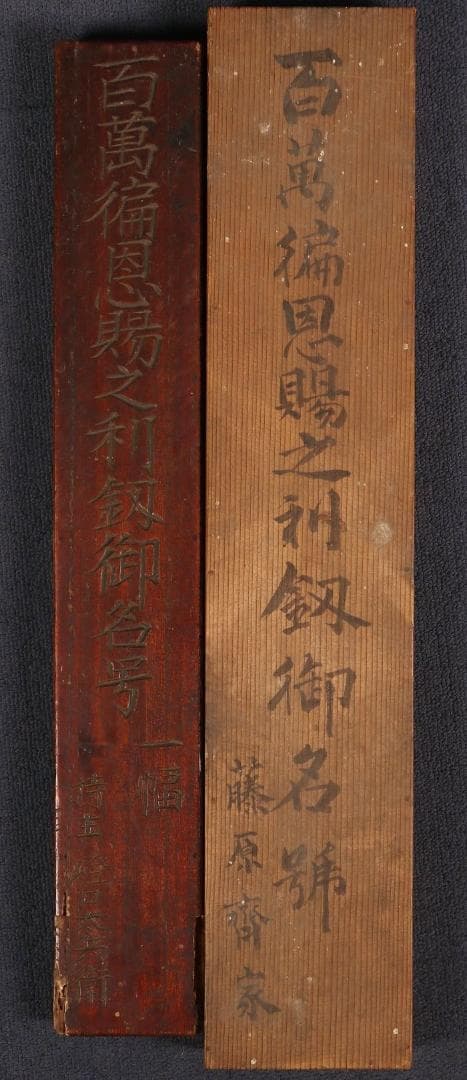 百萬徧恩賜之利釼御名號
藤原齊家
百萬徧恩賜之利釼御名号
一幅